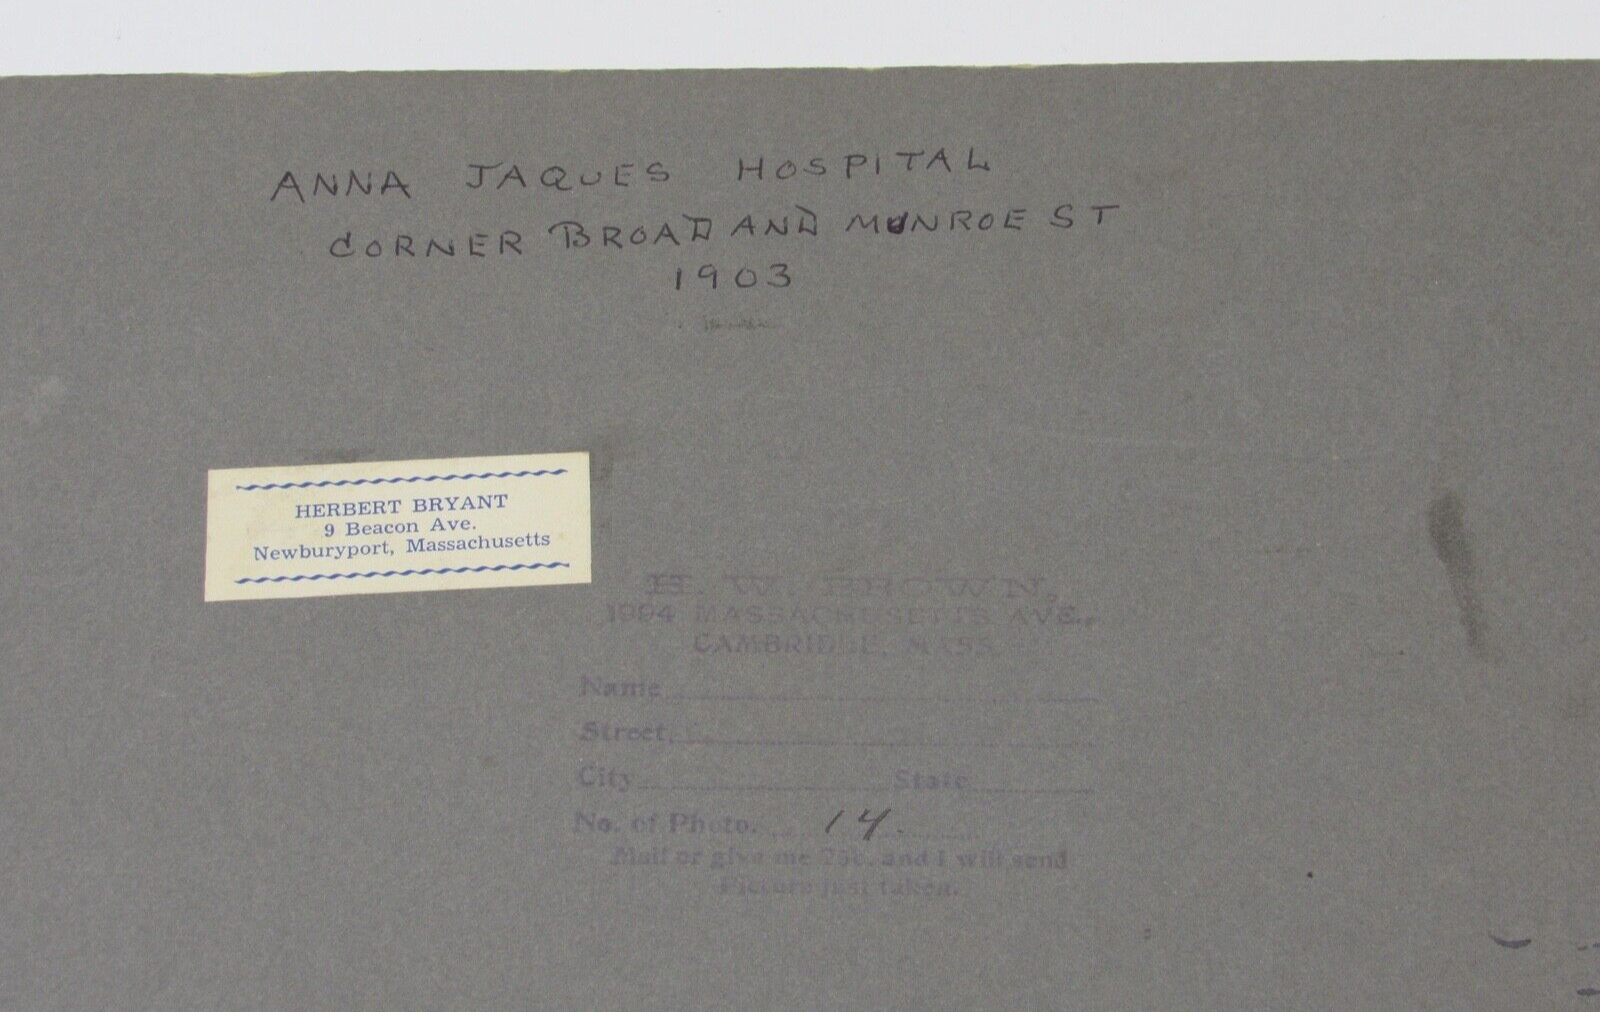 ANNA JAQUES HOSPITAL
CORNER BROAD AND MUNROE ST
1903
HERBERT BRYANT
9 Beacon Ave.
Newburyport, Massachusetts
H. W. BROWN,
1994 MASSACHUSETTS AVE.,
CAMBRIDGE, MASS.
Name
Street
City State
No. of Photo. 14
Mail or give me 25c. and I will send
Picture just taken.